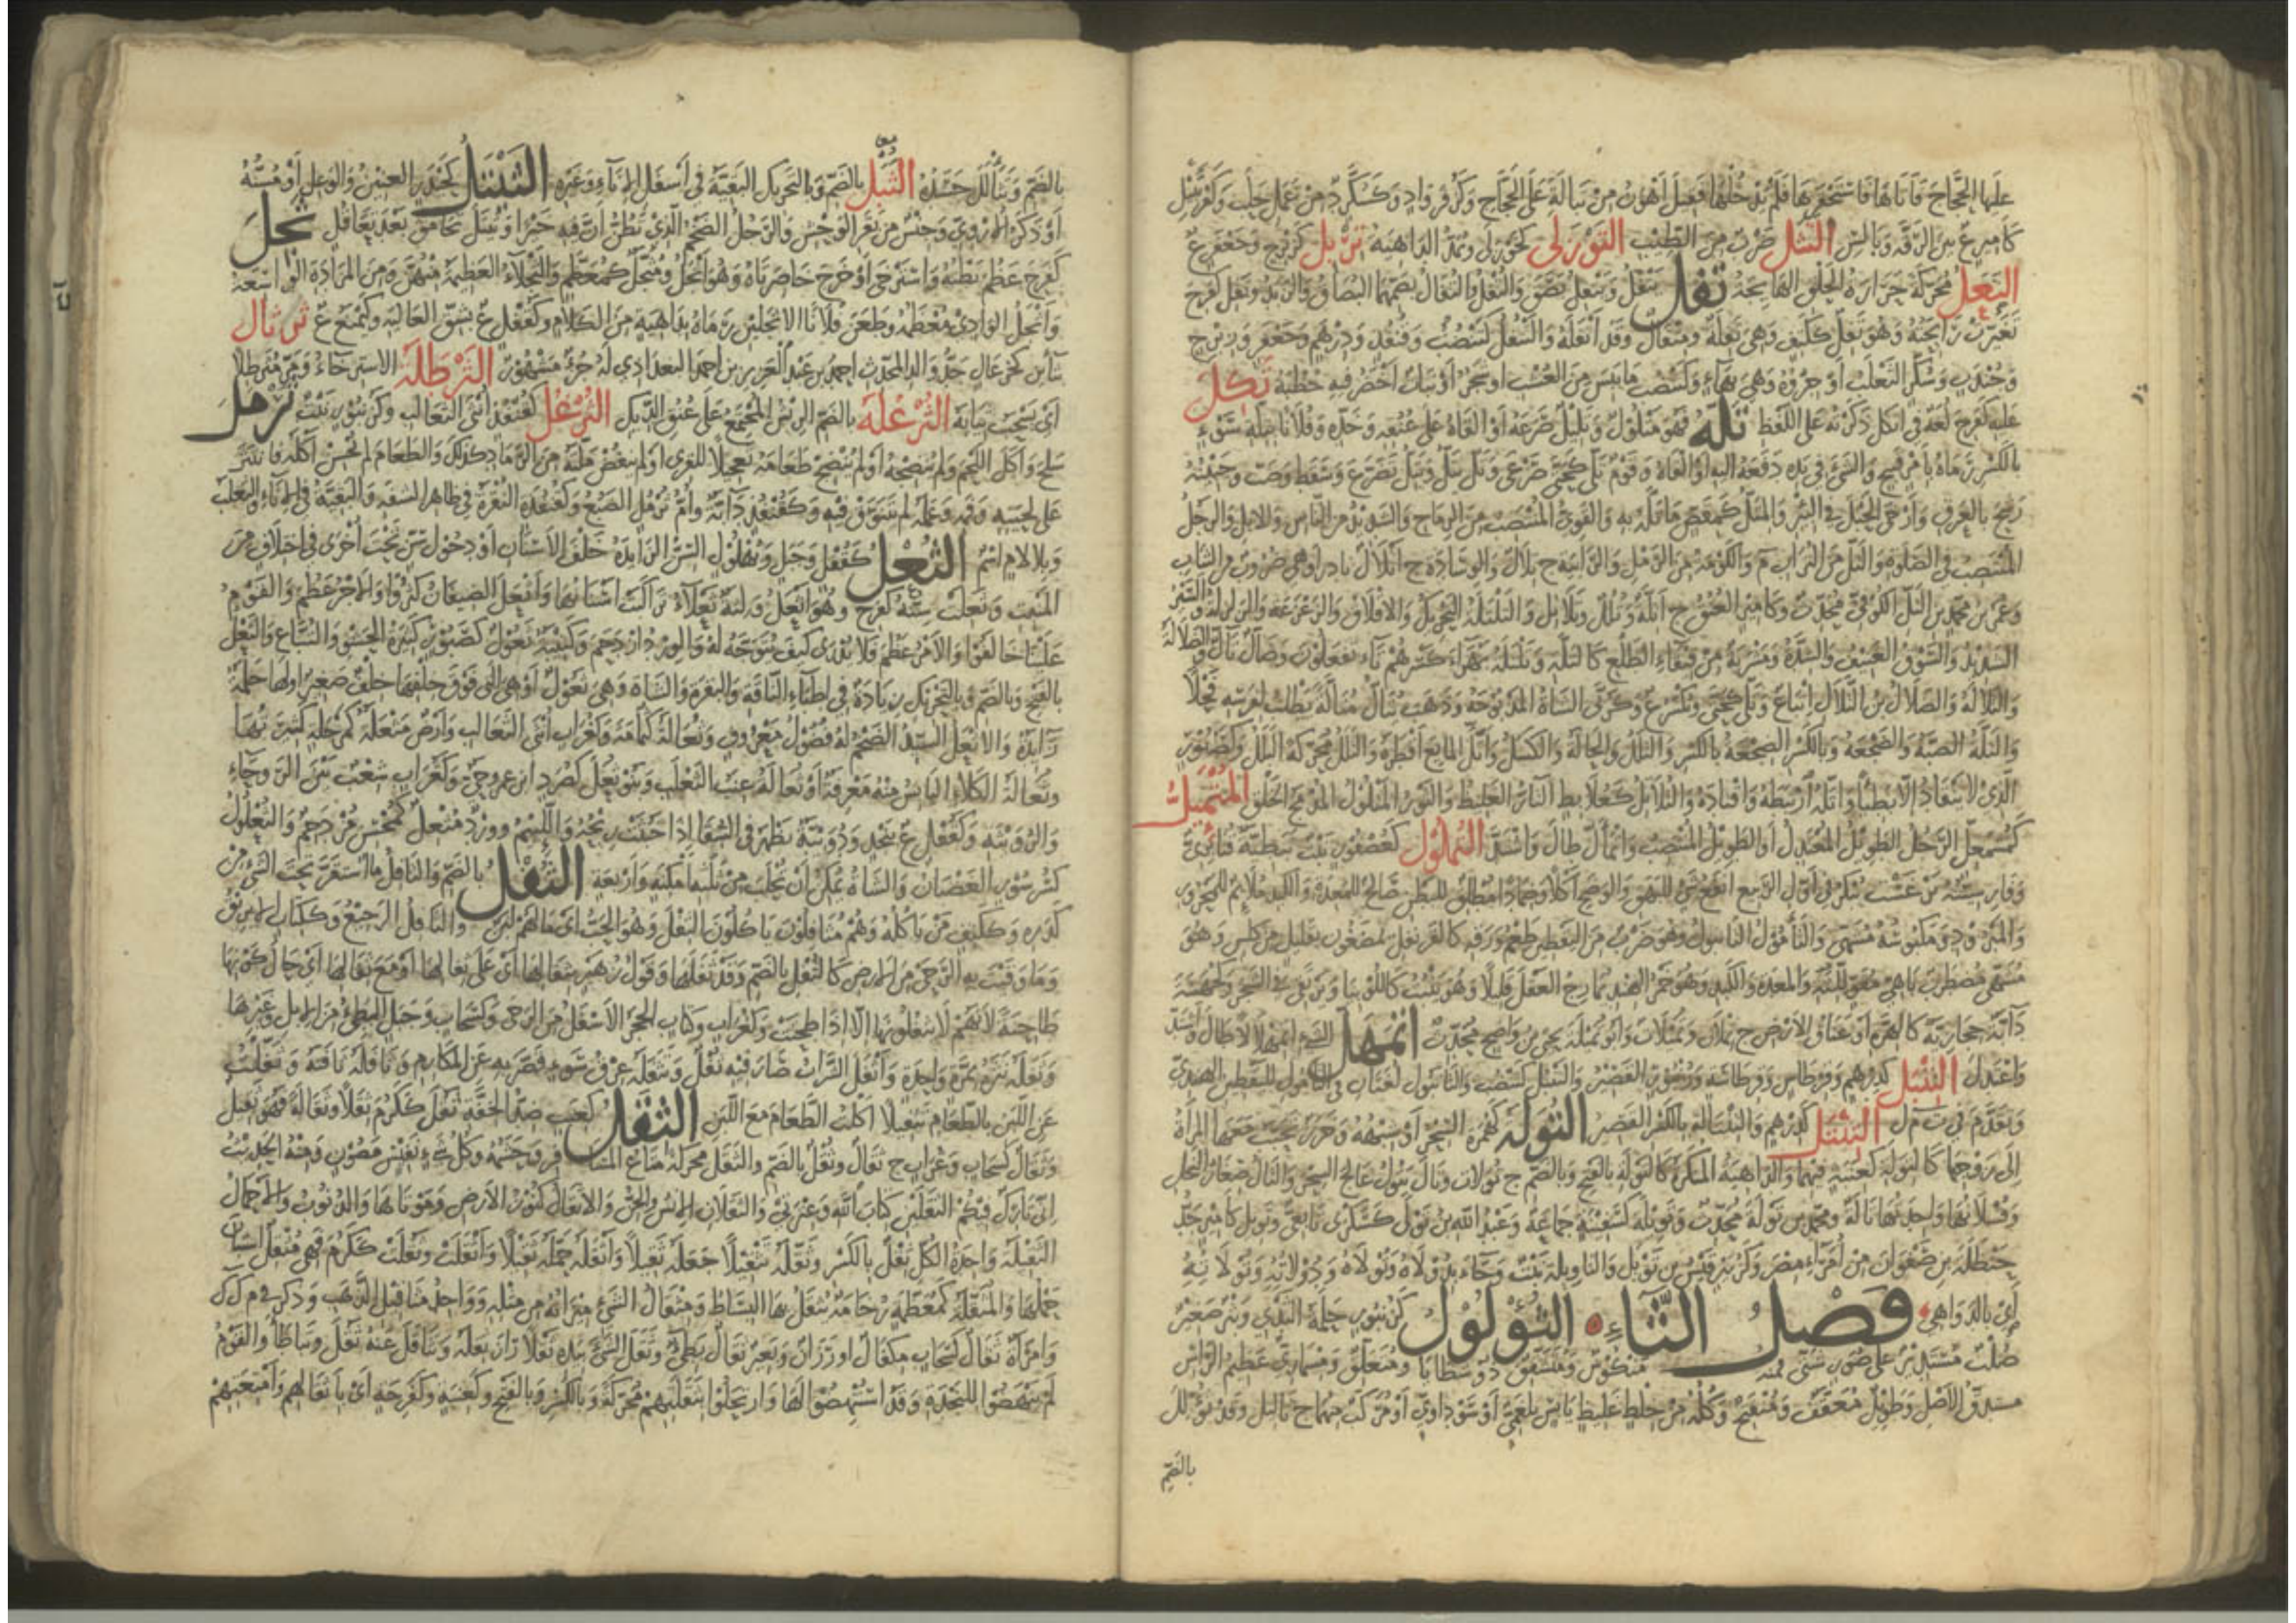 عليها الحجاج فأتاها فاستحقرها فلم يدخلها فقيل أهون من تبالة على الحجاج وكزفر واد وكسكر د من عمل حلب
كأمير ع بين الرقة وبالس التتل ضرب من الطيب التورلى
التعل محركة حرارة الحلق الهائجة تفل يتفل ويتفل بصق والتفل والتفال بضمهما البصاق والزبد وتفل كفرح
تغيرت رائحته وهو تفل ككتف وهي تفلة ومتفال وقد أتفله والتتفل كتنضب وقنفذ ودرهم وجعفر وزبرج
وجندب وسكر الثعلب أو جروه وهي بهاء وكتنضب ما يبس من العشب أو شجر أو نبات أخضر فيه خطبة تكل
عليه كفرح لغة في اتكل ذكرته على اللفظ تله فهو متلول وتليل صرعه أو ألقاه على عنقه وخده وفلانا بتلة سوء
بالكسر رماه بأمر قبيح والشيء في يده دفعه إليه أو ألقاه وقوم تلى كحتى صرعى وتل يتل ويتل تصرع وسقط وصب وجبينه
رشح بالعرق وأرخى الحبل في البئر والمتل كمقص ما تله به والقوي المنتصب من الرماح والشديد من الناس والإبل والرجل
المنتصب في الصلاة والتل من التراب م والكومة من الرمل والرابية ج تلال والوسادة ج أتلال نادر أو هي ضروب من الثياب
وعمر بن محمد بن التل الكوفي محدث وكأمير العنق ج أتلة وتلل وتلائل والتلتلة التحريك والإقلاق والزعزعة والزلزلة والسير
الشديد والسوق العنيف والشدة ومشربة من قيقاء الطلع كالتلة وتلتلة بهراء كسرهم تاء تفعلون وضال تال والضلالة
والتلالة والضلال بن التلال إتباع وتلى كحتى ويكسر ع وكربى الشاة المذبوحة وذهب يتال متالة يطلب لفرسه فحلا
والتلة الصبة والضجعة وبالكسر الضجعة بالكسر والبلل والحالة والكسل وأتل المائع أقطره والتلل محركة البلل وكصبور
الذي لا ينقاد إلا بطيئا وأتله ارتبطه واقتاده والتلاتل كعلابط التار الغليظ والثور المتلول المدمج الخلق المتمئل
كمشمعل الرجل الطويل المعتدل أو الطويل المنتصب واتمأل طال واشتد التملول كعصفور نبت نبطيته قنابرى
دابة حجازية كالهرة أو عناق الأرض ج تملان وتميلات وأبو تميلة يحيى بن واضح محدث اتمهل الشيء اتمهلالا طال واشتد
واعتدل التنبل كدرهم وقرطاس وقرطاسة وزنبور القصير والتنبل كتنضب والتانبول لغتان في التامول لليقطين الهندي
وتقدم في ت م ل التنتل كدرهم والتنتالة بالكسر القصير التولة كهمزة السحر أو شبهه وخرز تحبب معها المرأة
إلى زوجها كالتولة كعنبة فيهما والداهية المنكرة كالتولة بالفتح وبالضم ج تولات وتال يتول عالج السحر والتال صغار النخل
وفسلانها واحدتها تالة ومحمد بن تولة محدث وتويلة كسفينة جماعة وعبد الله بن تولى كسكرى تابعي وتويل كأمير جد
حنظلة بن صفوان من أمراء مصر وكزبير قيس بن تويل والتاويلة نبت وجاء بدولاه وتولاه ودولاته وتولاته
أي بالدواهي فصل الثاء الثؤلول كزنبور حلمة الثدي وبثر صغير
صلب مستدير على صور شتى فمنه منكوس ومتشقق ذو شظايا ومتعلق ومسماري عظيم الرأس
مستدق الأصل وطويل معقف ومنفتح وكله من خلط غليظ يابس بلغمي أو سوداوي أو مركب منهما ج ثآليل وقد ثؤلل
بالضم
بالضم وتثألل جسده الثبل بالضم وبالتحريك البقية في أسفل الإناء وغيره الثيتل كحيدر العنين والوعل أو مسنه
أو ذكر الأروى وجنس من بقر الوحش والرجل الضخم الذي تظن أن فيه خيرا وثيتل تحامق بعد تعاقل ثجل
كفرح عظم بطنه واسترخى أو خرج خاصرتاه وهو أثجل ومثجل كمعظم والثجلاء العظيمة منهن ومن المزادة الواسعة
وأثجل الوادي معظمه وطعن فلانا الأثجلين رماه بداهية من الكلام وكقفل ع بشق العالية وكمنع ع ثرثال
كخزعال جد والد المحدث أحمد بن عبد العزيز بن أحمد البغدادي له جزء مشهور الثرطلة الاسترخاء ومر مثرطلا
أي يسحب ثيابه الثرعلة بالضم الريش المجتمع على عنق الديك الثرغل كقنفذ أنثى الثعالب وكزنبور نبت ثرمل
سلح وأكل اللحم ولم ينضجه أو لم ينضج طعامه تعجيلا للقرى أو لم ينفض ملته من الرماد كذلك والطعام لم يحسن أكله فانتثر
على لحيته وفمه وعمله لم يتنوق فيه وكقنفذ دابة وأم ثرمل الضبع وكقنفذة النقرة في ظاهر الشفة والبقية في الإناء والثعلب
وبلا لام اسم الثعل كقفل وجبل وبهلول السن الزائدة خلف الأسنان أو دخول سن تحت أخرى في اختلاف من
المنبت وثعلت سنه كفرح وهو أثعل ولثة ثعلاء تراكبت أسنانها وأثعل الضيفان كثروا والأمر عظم والقوم
علينا خالفوا والأمر عظم فلا يدرى كيف يتوجه له والورد ازدحم وكتيبة ثعول كصبور كثيرة الحشو والتباع والثعل
بالفتح وبالضم وبالتحريك زيادة في أطباء الناقة والبقرة والشاة وهي ثعول أو هي التي فوق خلفها خلف صغير أو لها حلمة
زائدة والأثعل السيد الضخم له فضول معروف وثعالة كثمامة وكغراب أنثى الثعالب وأرض مثعلة كمرحلة كثيرتها
وثعالة الكلأ اليابس منه معرفة أو ثعالة عنب الثعلب وبنو ثعل كصرد ابن عمرو حي وكغراب شعب بين الروحاء
والرويثة وكقفل ع بنجد ودويبة تظهر في السقاء إذا خبثت ريحه واللئيم وورد مثعل كمحسن مزدحم والثعلول
كسرسور الغضبان والشاة يمكن أن تحلب من ثلثة أمكنة وأربعة الثفل بالضم والثافل ما استقر تحت الشيء من
كدره وككتف من يأكله وهم مثافلون يأكلون الثفل وهو الحب أي ما لهم لبن والثافل الرجيع وككتاب الإبريق
وما وقيت به الرحى من الأرض كالثفل بالضم وقد ثفلها وقول زهير بثفالها أي على ثفالها أو مع ثفالها أي حال كونها
طاحنة لأنهم لا يثفلونها إلا إذا طحنت وكغراب وكتاب الحجر الأسفل من الرحى وكسحاب وجبل البطيء من الإبل وغيرها
وثفله نثره بمرة واحدة وأثفل الشراب صار فيه ثفل وتثفله عرق سوء قصر به عن المكارم وثافله ثافنه وثفلت
عن اللبن بالطعام تثفيلا أكلت الطعام مع اللبن الثقل كعنب ضد الخفة ثقل ككرم ثقلا وثقالة فهو ثقيل
وثقال كسحاب وغراب ج ثقال وثقل بالضم والثقل محركة متاع المسافر وحشمه وكل شيء نفيس مصون ومنه الحديث
إني تارك فيكم الثقلين كتاب الله وعترتي والثقلان الإنس والجن والأثقال كنوز الأرض وموتاها والذنوب والأحمال
الثقيلة واحدة الكل ثقل بالكسر وثقله تثقيلا جعله ثقيلا وأثقله حمله ثقيلا وأثقلت وثقلت ككرم فهي مثقل استبان
حملها والمثقلة كمعظمة رخامة يثقل بها البساط ومثقال الشيء ميزانه من مثله وواحد مثاقيل الذهب وذكر في م ك ك
وامرأة ثقال كسحاب مكفال أو رزان وبعير ثقال بطيء وثقل الشيء بيده ثقلا راز ثقله وتثاقل عنه ثقل وتباطأ والقوم
لم ينهضوا للنجدة وقد استنهضوا لها وارتحلوا بثقلتهم محركة وبالكسر وبالفتح وكعنبة وكفرحة أي بأثقالهم وأمتعتهم